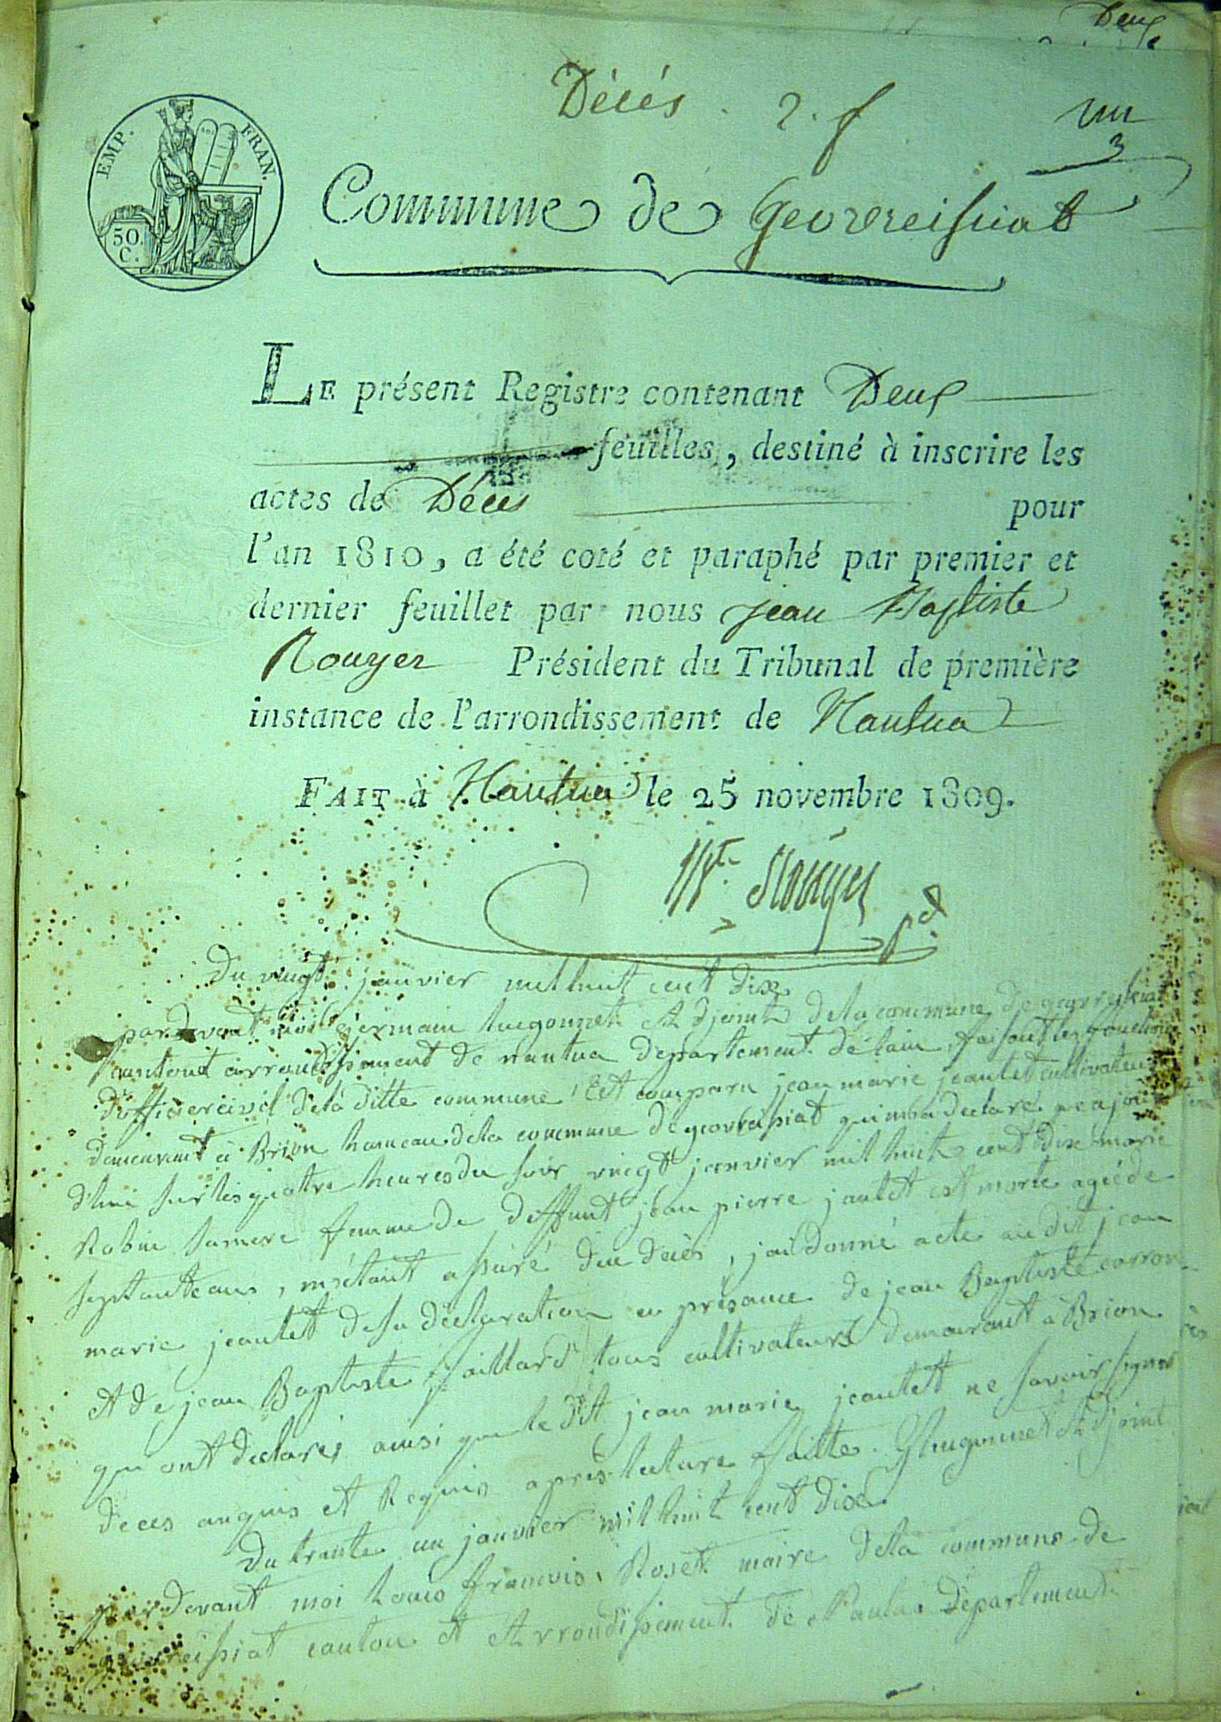 Deux
Décès . 2. f
un
3
EMP. FRAN.
50.
C.
Commune de Gevreissiat
LE présent Registre contenant Deux
feuilles, destiné à inscrire les
actes de Décès pour
l'an 1810, a été coté et paraphé par premier et
dernier feuillet par nous jean Baptiste
Rouyer Président du Tribunal de première
instance de l'arrondissement de Nantua
FAIT à Nantua le 25 novembre 1809.
Rouyer pd.
Du vingt janvier mil huit cent dix
pardevant moi germain hugonnet Adjoint de la commune de gevreissiat
canton et arrondissement de nantua departement de lain, faisant les fonctions
d'officier civil de la ditte commune Est comparu jean marie jeantet cultivateur
demeurant à Brion hameau de la commune de gevreissiat qui m'a declaré que ajour
d'hui sur les quattre heures du soir vingt janvier mil huit cent dix marie
Robin sa mere femme de deffunt jean pierre jantet est morte agée de
septante ans, m'étant assuré du decès, j'ai donné acte au dit jean
marie jeantet de sa declaration en présance de jean Baptiste carron
et de jean Baptiste gaillard tous cultivateurs demeurant à Brion
qui ont declarés ainsi que le dit jean marie jeantet ne savoir signer
de ces anquis et Requis apres lecture faitte. Ghugonnet Adjoint
Du trante un janvier mil huit cent dix
par devant moi Louis francois Roset maire de la commune de
gevreissiat canton et Arrondissement de Nantua Departement